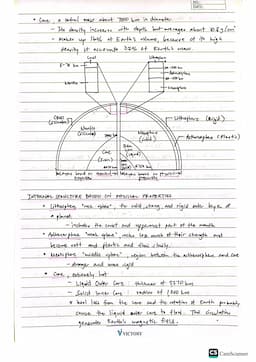 • Core, a central mass about 7000 km in diameter.
- Its density increases with depth but averages about 10.8 g/cm³
- makes up 16% of Earth's volume, because of its high
density it accounts 32% of Earth's mass.
Crust
Lithosphere
Mantle
Asthenosphere
Crust
(silicates)
Mantle
(silicate)
Core
(iron)
Mesosphere
(solid)
Lithosphere (Rigid)
Asthenosphere (Plastic)
INTERNAL STRUCTURE BASED ON PHYSICAL PROPERTIES
• Lithosphere "rock sphere", the solid, strong, and rigid outer layer of
a planet.
- includes the crust and uppermost part of the mantle
• Asthenosphere "weak sphere" rocks lose much of their strength and
become soft and plastic and flow slowly.
• Mesosphere "middle sphere", region between the asthenosphere and core
- stronger and more rigid
• Core, extremely hot
- Liquid Outer Core : thickness of 2270 km
- Solid Inner Core : radius of 1200 km
* heat loss from the core and the rotation of Earth probably
cause the liquid outer core to flow. This circulation
generates Earth's magnetic field.
VICTORY
CS CamScanner